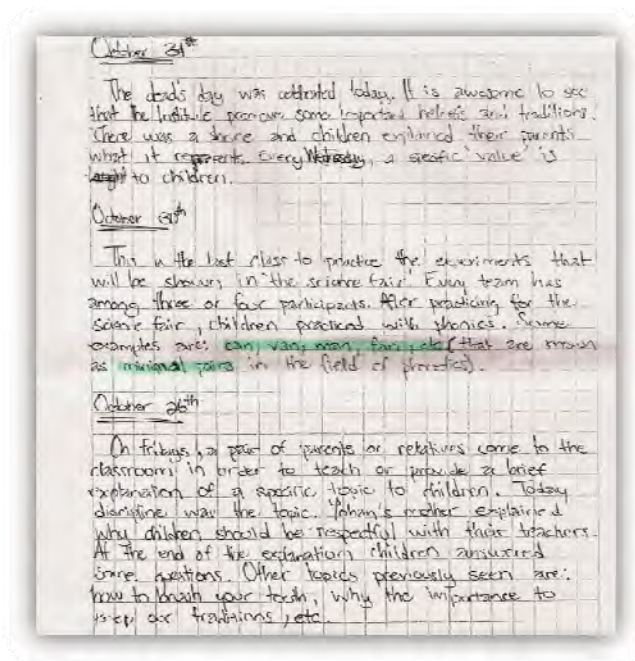 October 31th
The dead's day was celebrated today. It is awesome to see
that the Institute promove some important beliefs and traditions.
There was a shrine and children explained their parents
what it represents. Every Wednesday, a specific 'value' is
to children.
October 30th
This is the last class to practice the experiments that
will be shown in 'the science fair'. Every team has
among three or four participants. After practicing for the
science fair, children practiced with phonics. Some
examples are: can, van, man, fan, etc (that are known
as minimal pairs in the field of phonetics).
October 26th
On fridays, a pair of parents or relatives come to the
classroom in order to teach or provide a brief
explanation of a specific topic to children. Today
discipline was the topic. Yohan's mother explained
why children should be respectful with their teachers.
At the end of the explanation children answered
some questions. Other topics previously seen are:
how to brush your teeth, why the importance to
keep our traditions, etc.